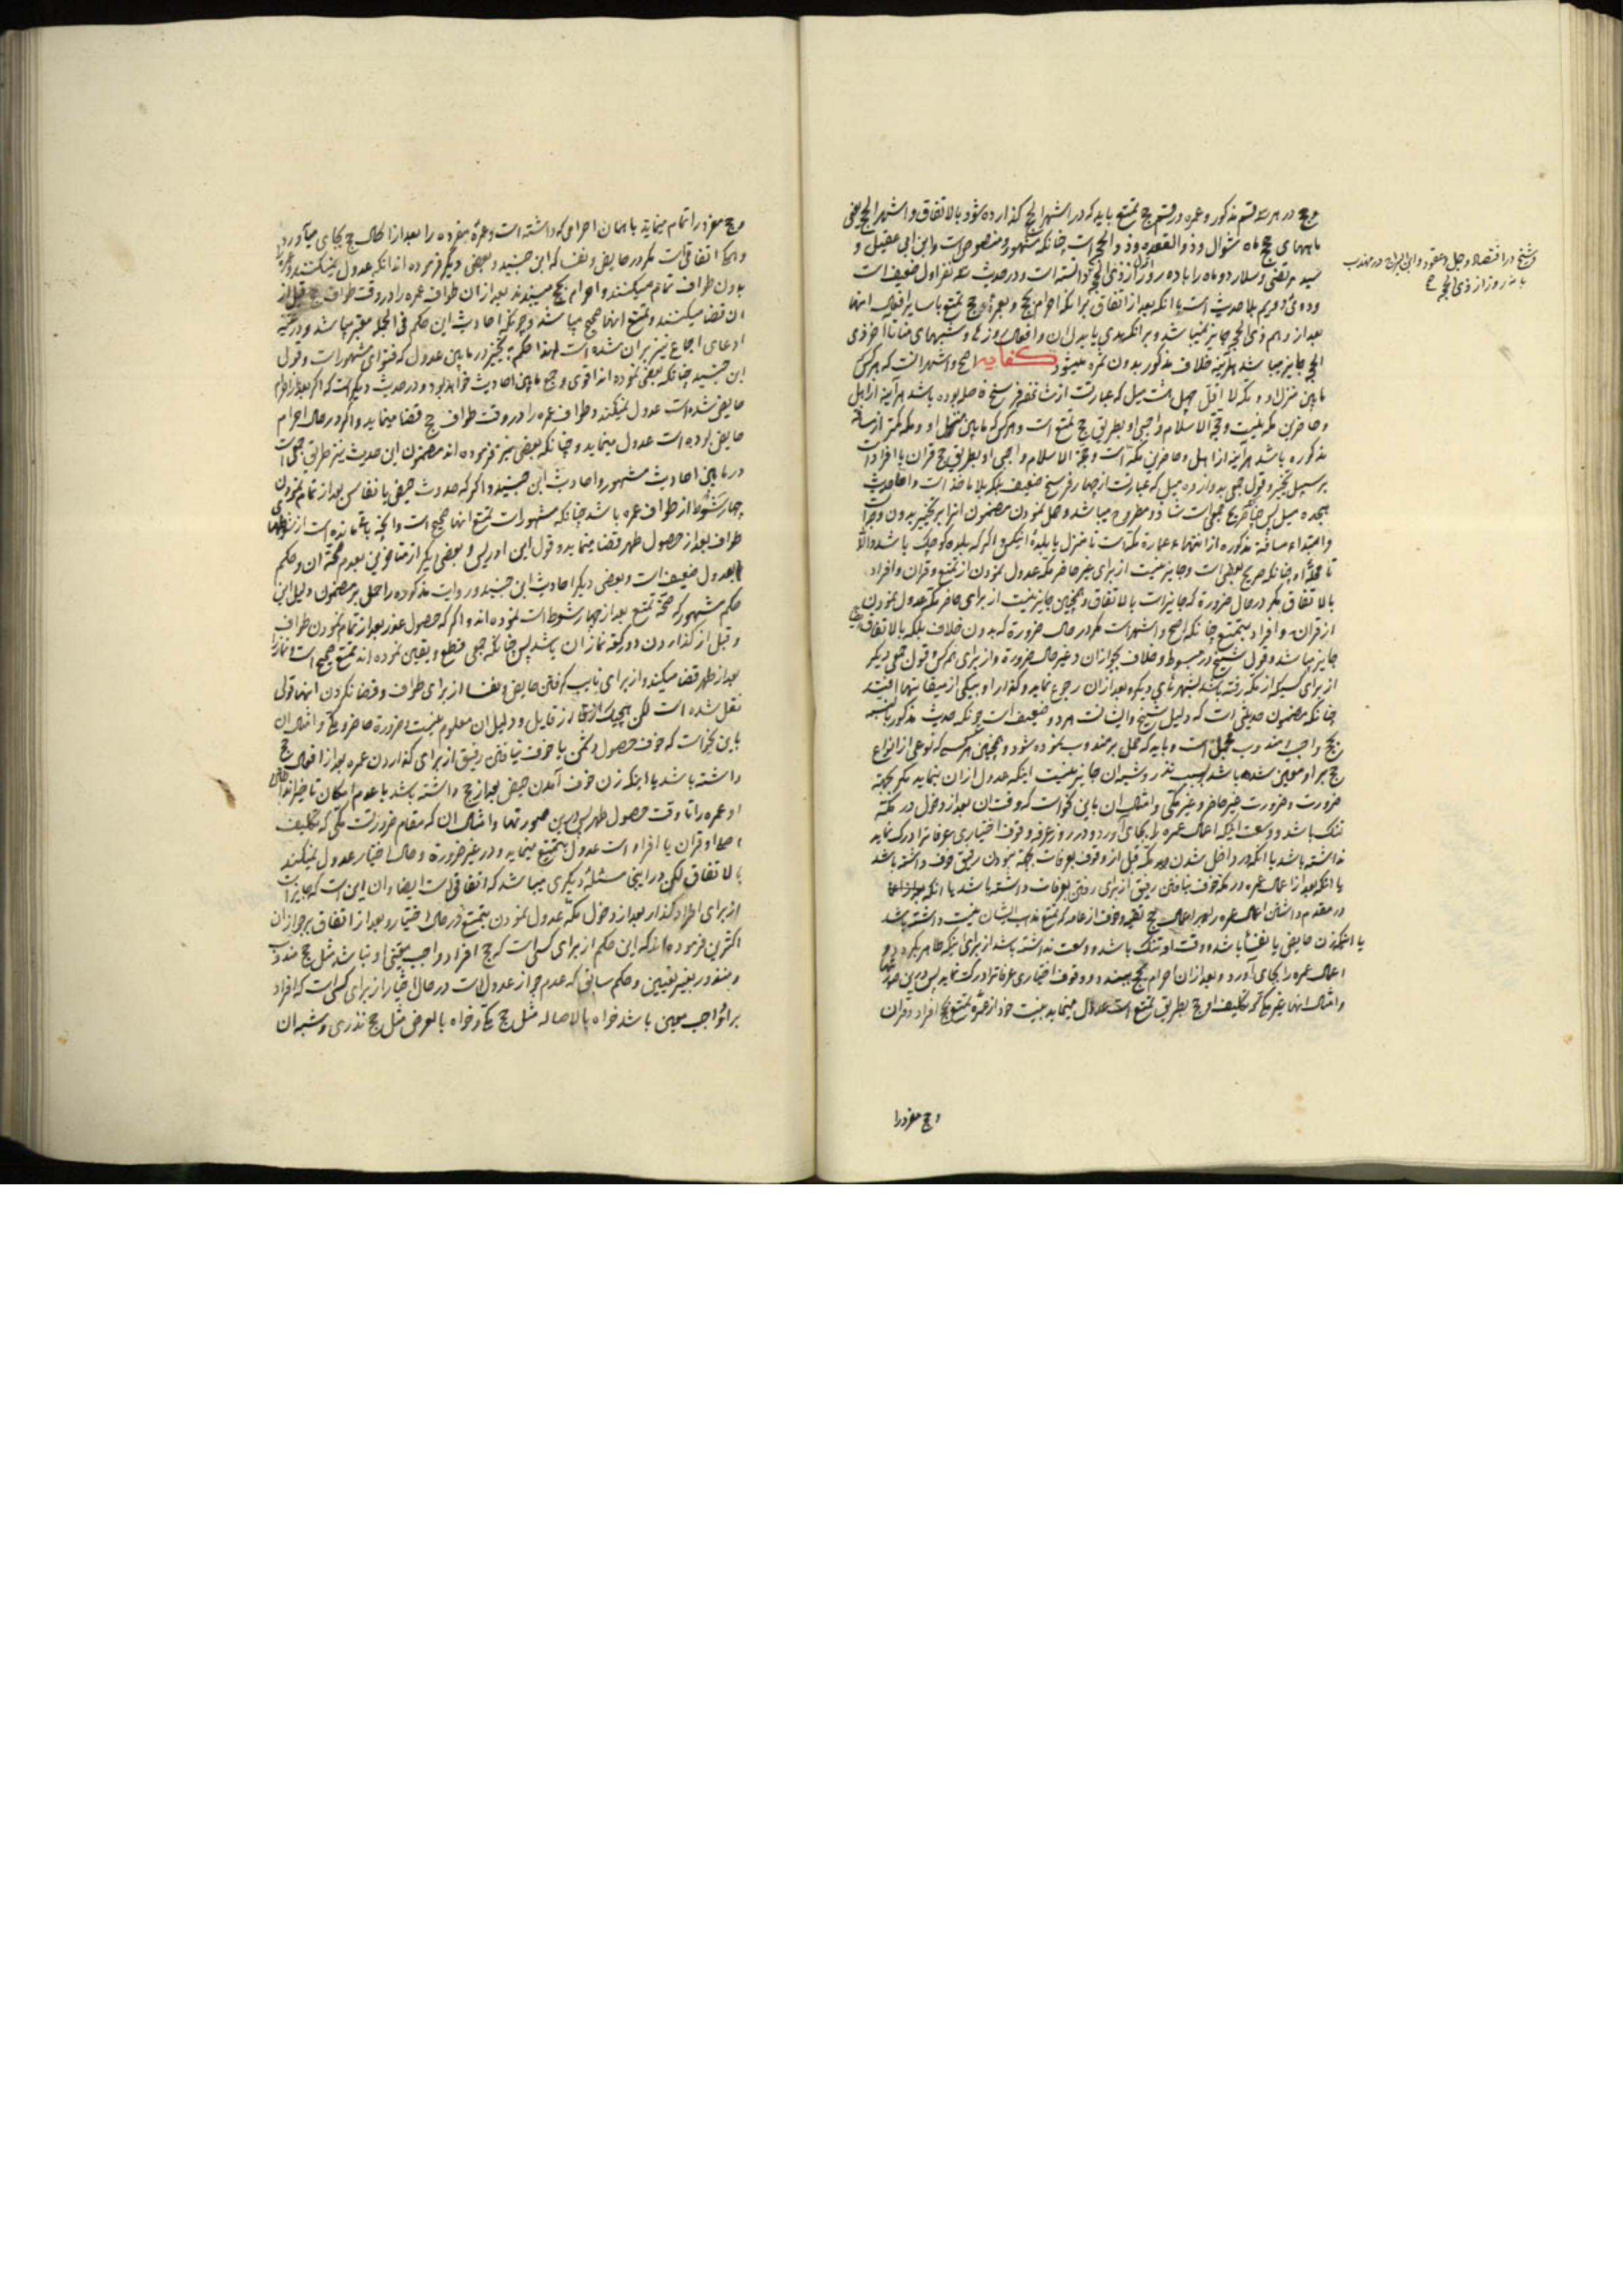 و حج در هر سه قسم مذکور و عمره در قسم حج تمتع باید که در اشهر الحج گذارده شود بالاتفاق و اشهر الحج یعنی
ماههای حج ماه شوال و ذو القعده و ذو الحجه است چنانکه مشهور و منصوص است و ابن ابی عقیل و
سید مرتضی و سلار دو ماه را با ده روز اول از ذی الحجه دانسته است و در حدیث سه نفر اول ضعیف است
و شیخ در اقتصاد و جمل و عقود و ابن البراج در مهذب
با نه روز از ذی الحجه
بعد از دهم ذی الحجه جایز نمیباشد و بر آنکه هدی یا بدل آن و افعال روزها و شبهای منا تا آخر ذی
الحجه جایز میباشد هر آینه خلاف مذکور بدون ثمره میشود کفایه اصح و اشهر آنست که هر کس
مابین منزل او و مکه لا اقل چهل هشت میل که عبارتست از شانزده فرسخ فاصله بوده باشد هر آینه از اهل
و حاضرین مکه نیست و حجة الاسلام واجبی او بطریق حج تمتع است و هر کس که مابین منزل او و مکه کمتر از مسافة
مذکوره باشد هر آینه از اهل و حاضرین مکه است و حجة الاسلام واجبی او بطریق حج قران یا افراد است
بر سبیل تخییر و قول جمعی به دوازده میل که عبارتست از چهار فرسخ ضعیف بلکه بلا ماخذ است و اما حدیث
هجده میل پس شاذ و مطروح میباشد و حمل نمودن مضمون آنرا بر تخییر بدون وجه است
و ابتداء مسافة مذکوره از انتهاء عمارة مکه است تا منزل یا بلده آنکس اگر که بلده کوچک باشد والا
تا محله او چنانکه صریح بعضی است و جایز نیست از برای غیر حاضر مکه عدول نمودن از تمتع و قران و افراد
بالاتفاق مگر در حال ضرورة که جایز است بالاتفاق و همچنین جایز نیست از برای حاضر مکه عدول نمودن
از قران و افراد بتمتع چنانکه اصح و اشهر است مگر در حال ضرورة که بدون خلاف بلکه بالاتفاق
جایز میباشد و قول شیخ در مبسوط و خلاف بجواز آن در غیر حال ضرورة و از برای هر کس و قول جمعی دیگر
از برای کسیکه از مکه رفته باشد بشهرهای دیگر و بعد از آن رجوع نماید و گذار او بیکی از میقاتها افتد
چنانکه مضمون حدیثی است که دلیل شیخ و ایشان است هر دو ضعیف است چونکه حدیث مذکور بالنسبة
بحج واجب و مندوب مجمل است و باید که حمل بر مندوب نموده شود و همچنین هر کسی که نوعی از انواع
حج بر او معین شده باشد بسبب نذر و شبه آن جایز نیست اینکه عدول از آن بنماید مگر بجهة
ضرورت و ضرورت غیر حاضر و غیر مکی و امثال آن باین نحو است که وقت آن بعد از دخول در مکه
تنگ باشد و وسعت اینکه اعمال عمره را بجای آورد و در روز عرفه وقوف اختیاری عرفاترا درک نماید
نداشته باشد یا آنکه در داخل شدن مکه قبل از وقوف بعرفات بجهة نبودن رفیق خوف داشته باشد
یا آنکه بعد از اعمال عمره در مکه خوف نیافتن رفیق از برای رفتن بعرفات داشته باشد یا آنکه
در مقدم داشتن اعمال عمره را بر اعمال حج تقیه و خوف از عامه که تمتع مذهب ایشان نیست داشته باشد
یا اینکه زن حایض یا نفسا باشد و وقت او تنگ باشد و وسعت نداشته باشد از برای اینکه طاهر بگردد و
اعمال عمره را بجای آورد و بعد از آن احرام بحج ببندد و وقوف اختیاری عرفاترا درک نماید پس در این صورتها
و امثال آنها غیر مکی که تکلیف او حج بطریق تمتع است عدول مینماید بنیت خود از عمره تمتع بحج افراد و قران
و حج مفرد را
و حج مفرد را تمام مینماید باهمان احرامی که داشته است و عمره مفرده را بعد از اکمال حج بجای میآورد
و این حکم اتفاقی است مگر در حایض و نفسا که ابن جنید و بعضی دیگر فرموده اند آنکه عدول نمیکنند
بدون طواف تمام میکنند و احرام بحج میبندند بعد از آن طواف عمره را در وقت طواف حج قبل از
آن قضا میکنند و تمتع آنها صحیح میباشد و چونکه احادیث این حکم فی الجمله معتبر میباشد و
ادعای اجماع نیز بر آن شده است لهذا حکم بتخییر در مابین عدول که فتوای مشهور است و قول
ابن جنید چنانکه بعضی نموده اند اقوی و جمع مابین احادیث خواهد بود و در حدیث دیگر است که اگر بعد از احرام
حایض شده است عدول نمیکند و طواف عمره را در وقت طواف حج قضا مینماید و اگر در حال احرام
حایض بوده است عدول مینماید و چنانکه بعضی نیز فرموده اند مضمون این حدیث نیز طریق جمعی است
در مابین احادیث مشهور و احادیث ابن جنید و اگر که حدوث حیض یا نفاس بعد از تمام نمودن
چهار شوط از طواف عمره باشد چنانکه مشهور است تمتع آنها صحیح است و آنچه باقیمانده است از شوطهای
طواف بعد از حصول طهر قضا مینماید و قول ابن ادریس و بعضی دیگر از متاخرین بعدم صحة آن و حکم
بعدول ضعیف است و بعضی دیگر احادیث ابن جنید و روایت مذکوره را حمل بر مضمون دلیل این
حکم مشهور که صحة تمتع بعد از چهار شوط است نموده اند و اگر که حصول عذر بعد از تمام نمودن طواف
و قبل از گذاردن دو رکعة نماز آن باشد پس چنانکه جمعی قطع و یقین نموده اند تمتع صحیح است و نماز را
بعد از طهر قضا میکند و از برای نایب گرفتن حایض و نفسا از برای طواف و قضا نکردن آنها قولی
نقل شده است لکن هیچیک از قایل و دلیل آن معلوم نیست و ضرورة حاضر و مکی و امثال آن
باین نحو است که خوف حصول دشمن یا خوف نیافتن رفیق از برای گذاردن عمره بعد از افعال حج
داشته باشد یا اینکه زن خوف آمدن حیض بعد از حج داشته باشد با عدم امکان تاخیر انداختن
او عمره را تا وقت حصول طهر پس در این صورتها و امثال آن که مقام ضرورتست مکی که تکلیف
اصلی او قران یا افراد است عدول بتمتع مینماید و در غیر ضرورة و حال اختیار عدول نمیکند
بالاتفاق لکن در اینجا مسئله دیگری میباشد که اتفاقی است ایضا و آن این است که جایز است
از برای افراد گذار بعد از دخول مکه عدول نمودن بتمتع در حال اختیار و بعد از اتفاق بر جواز آن
اکثرین فرموده اند که این حکم از برای کسی است که حج افراد واجب معینی او نباشد مثل حج مندوب
و منذور بغیر تعیین و حکم سابق که عدم جواز عدول است در حال اختیار از برای کسی است که افراد
بر او واجب معین باشد خواه بالاصاله مثل حج مکی و خواه بالعرض مثل حج نذری و شبه آن